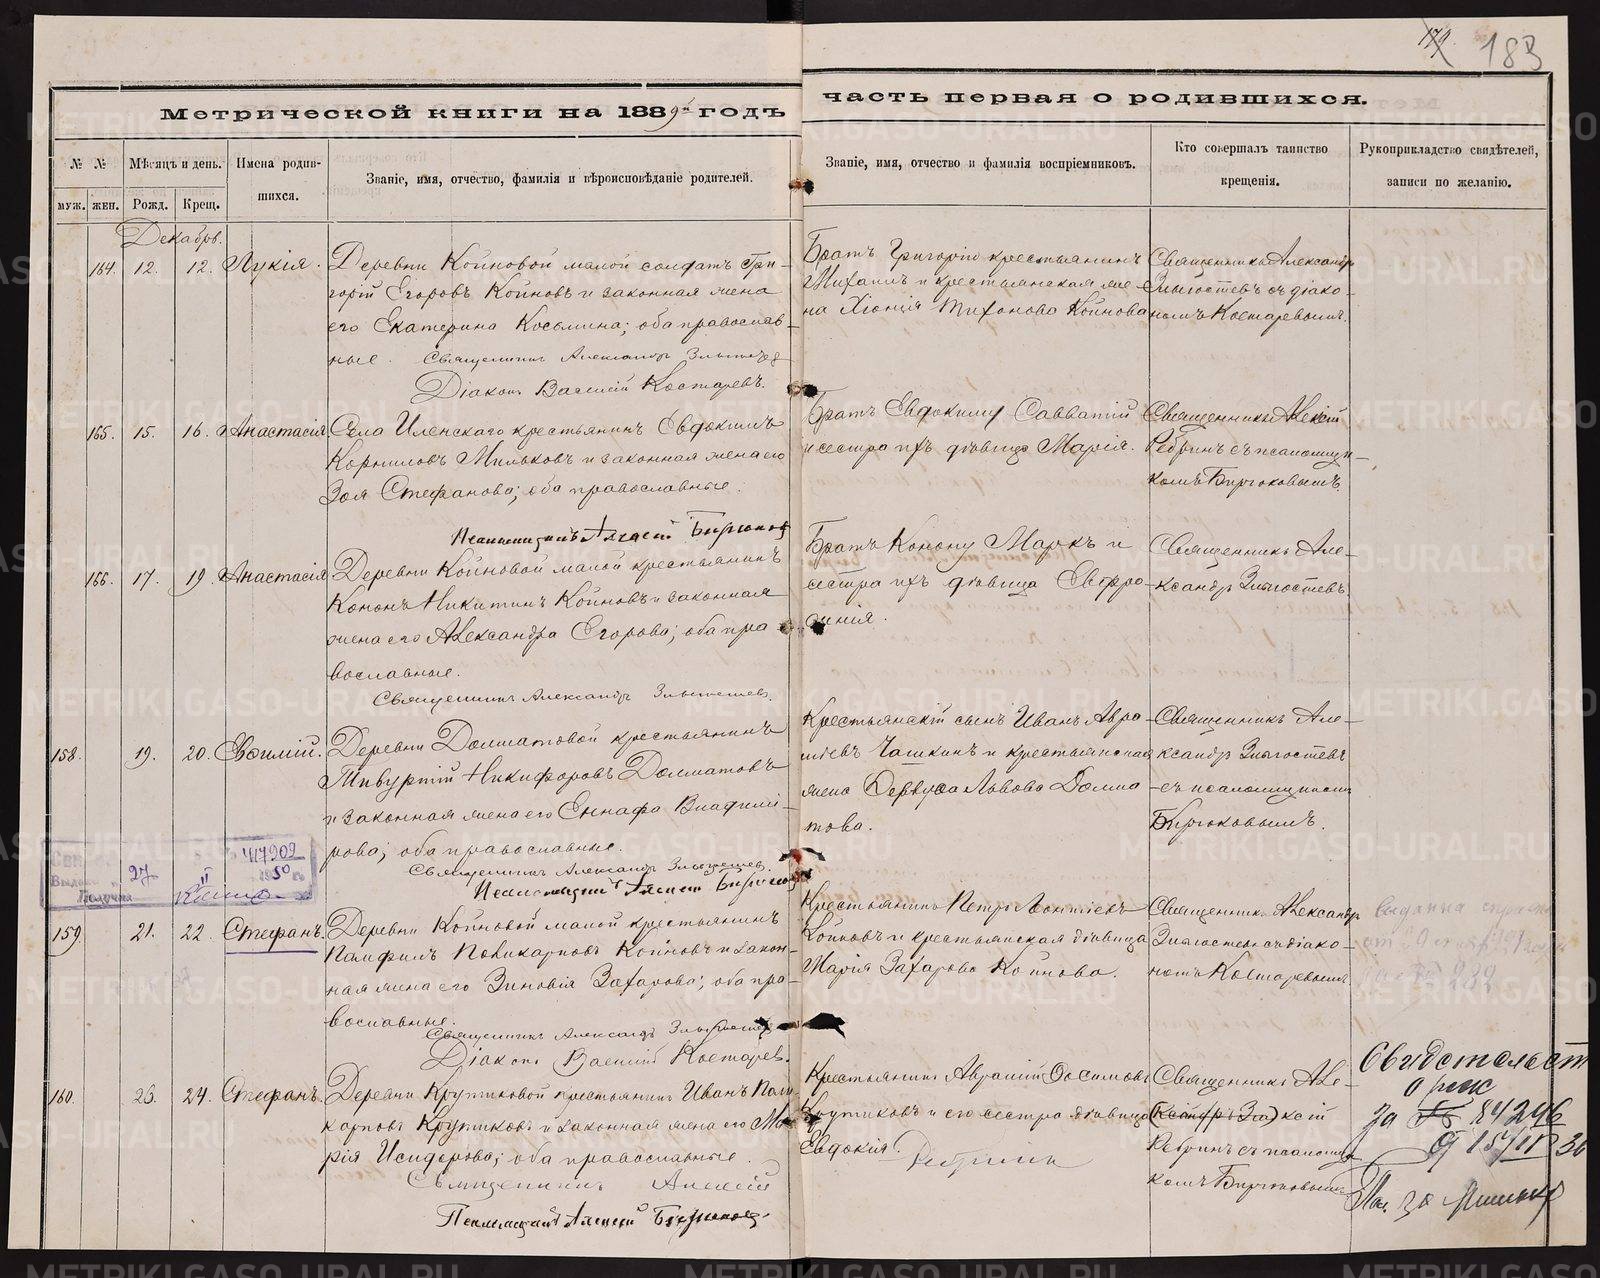 183
Метрической книги на 1889й годъ
часть первая о родившихся.
№ №
Мѣсяцъ и день.
Имена родив-
шихся.
Званіе, имя, отчество, фамилія и вѣроисповѣданіе родителей.
Званіе, имя, отчество и фамилія воспріемниковъ.
Кто совершалъ таинство
крещенія.
Рукоприкладство свидѣтелей,
записи по желанію.
муж. жен. Рожд. Крещ.
Декабрь.
164. 12. 12. Лукія.
Деревни Койновой малой солдатъ Гри-
горій Егоровъ Койновъ и законная жена
его Екатерина Косьмина; оба православ-
ные.
Священникъ Александръ
Діаконъ Василій Костаревъ.
Братъ Григорію крестьянинъ
Михаилъ и крестьянская же-
на Хіонія Тихонова Койнова
Священникъ Александръ
съ діако-
номъ Костаревымъ.
165. 15. 16. Анастасія.
Села Иленскаго крестьянинъ Евдокимъ
Корниловъ Мильковъ и законная жена его
Зоя Стефанова; оба православные.
Псаломщикъ Алексій Бирюковъ
Братъ Евдокиму Савватій
и сестра ихъ дѣвица Марія.
Священникъ Алексій
Ребринъ съ псаломщи-
комъ Бирюковымъ.
166. 17. 19. Анастасія
Деревни Койновой малой крестьянинъ
Кононъ Никитинъ Койновъ и законная
жена его Александра Егорова; оба пра-
вославные.
Священникъ Александръ
Братъ Конону Маркъ и
сестра ихъ дѣвица Евфро-
синія.
Священникъ Але-
ксандръ
158. 19. 20. Евѳимій.
Деревни Долматовой крестьянинъ
Тивуртій Никифоровъ Долматовъ
и законная жена его Еннафа Владимі-
рова; оба православные.
Священникъ Александръ
Псаломщикъ Алексій Бирюковъ
Крестьянскій сынъ Иванъ Авра-
Чашкинъ и крестьянская
жена Львова Долма-
това.
Священникъ Але-
ксандръ
съ псаломщикомъ
Бирюковымъ.
417909
27 II 1950 г.
159. 21. 22. Стефанъ.
Деревни Койновой малой крестьянинъ
Памфилъ Поликарповъ Койновъ и закон-
ная жена его Зиновія Захарова; оба пра-
вославные.
Священникъ Александръ
Діаконъ Василій Костаревъ.
Крестьянинъ Петръ Леонтіевъ
Койновъ и крестьянская дѣвица
Марія Захарова Койнова.
Священникъ Александръ
съ діако-
номъ Костаревымъ
160. 23. 24. Стефанъ.
Деревни Крутиковой крестьянинъ Иванъ Поли-
карповъ Крутиковъ и законная жена его Ма-
рія Исидорова; оба православные.
Священникъ Алексій
Ребринъ
Псаломщикъ Алексій Бирюковъ.
Крестьянинъ Авраамій Зосимовъ
Крутиковъ и его сестра дѣвица
Евдокія.
Священникъ Але-
(ксандръ) ксій
Ребринъ съ псаломщи-
комъ Бирюковымъ
Свидетельст
о рож
За № 84246